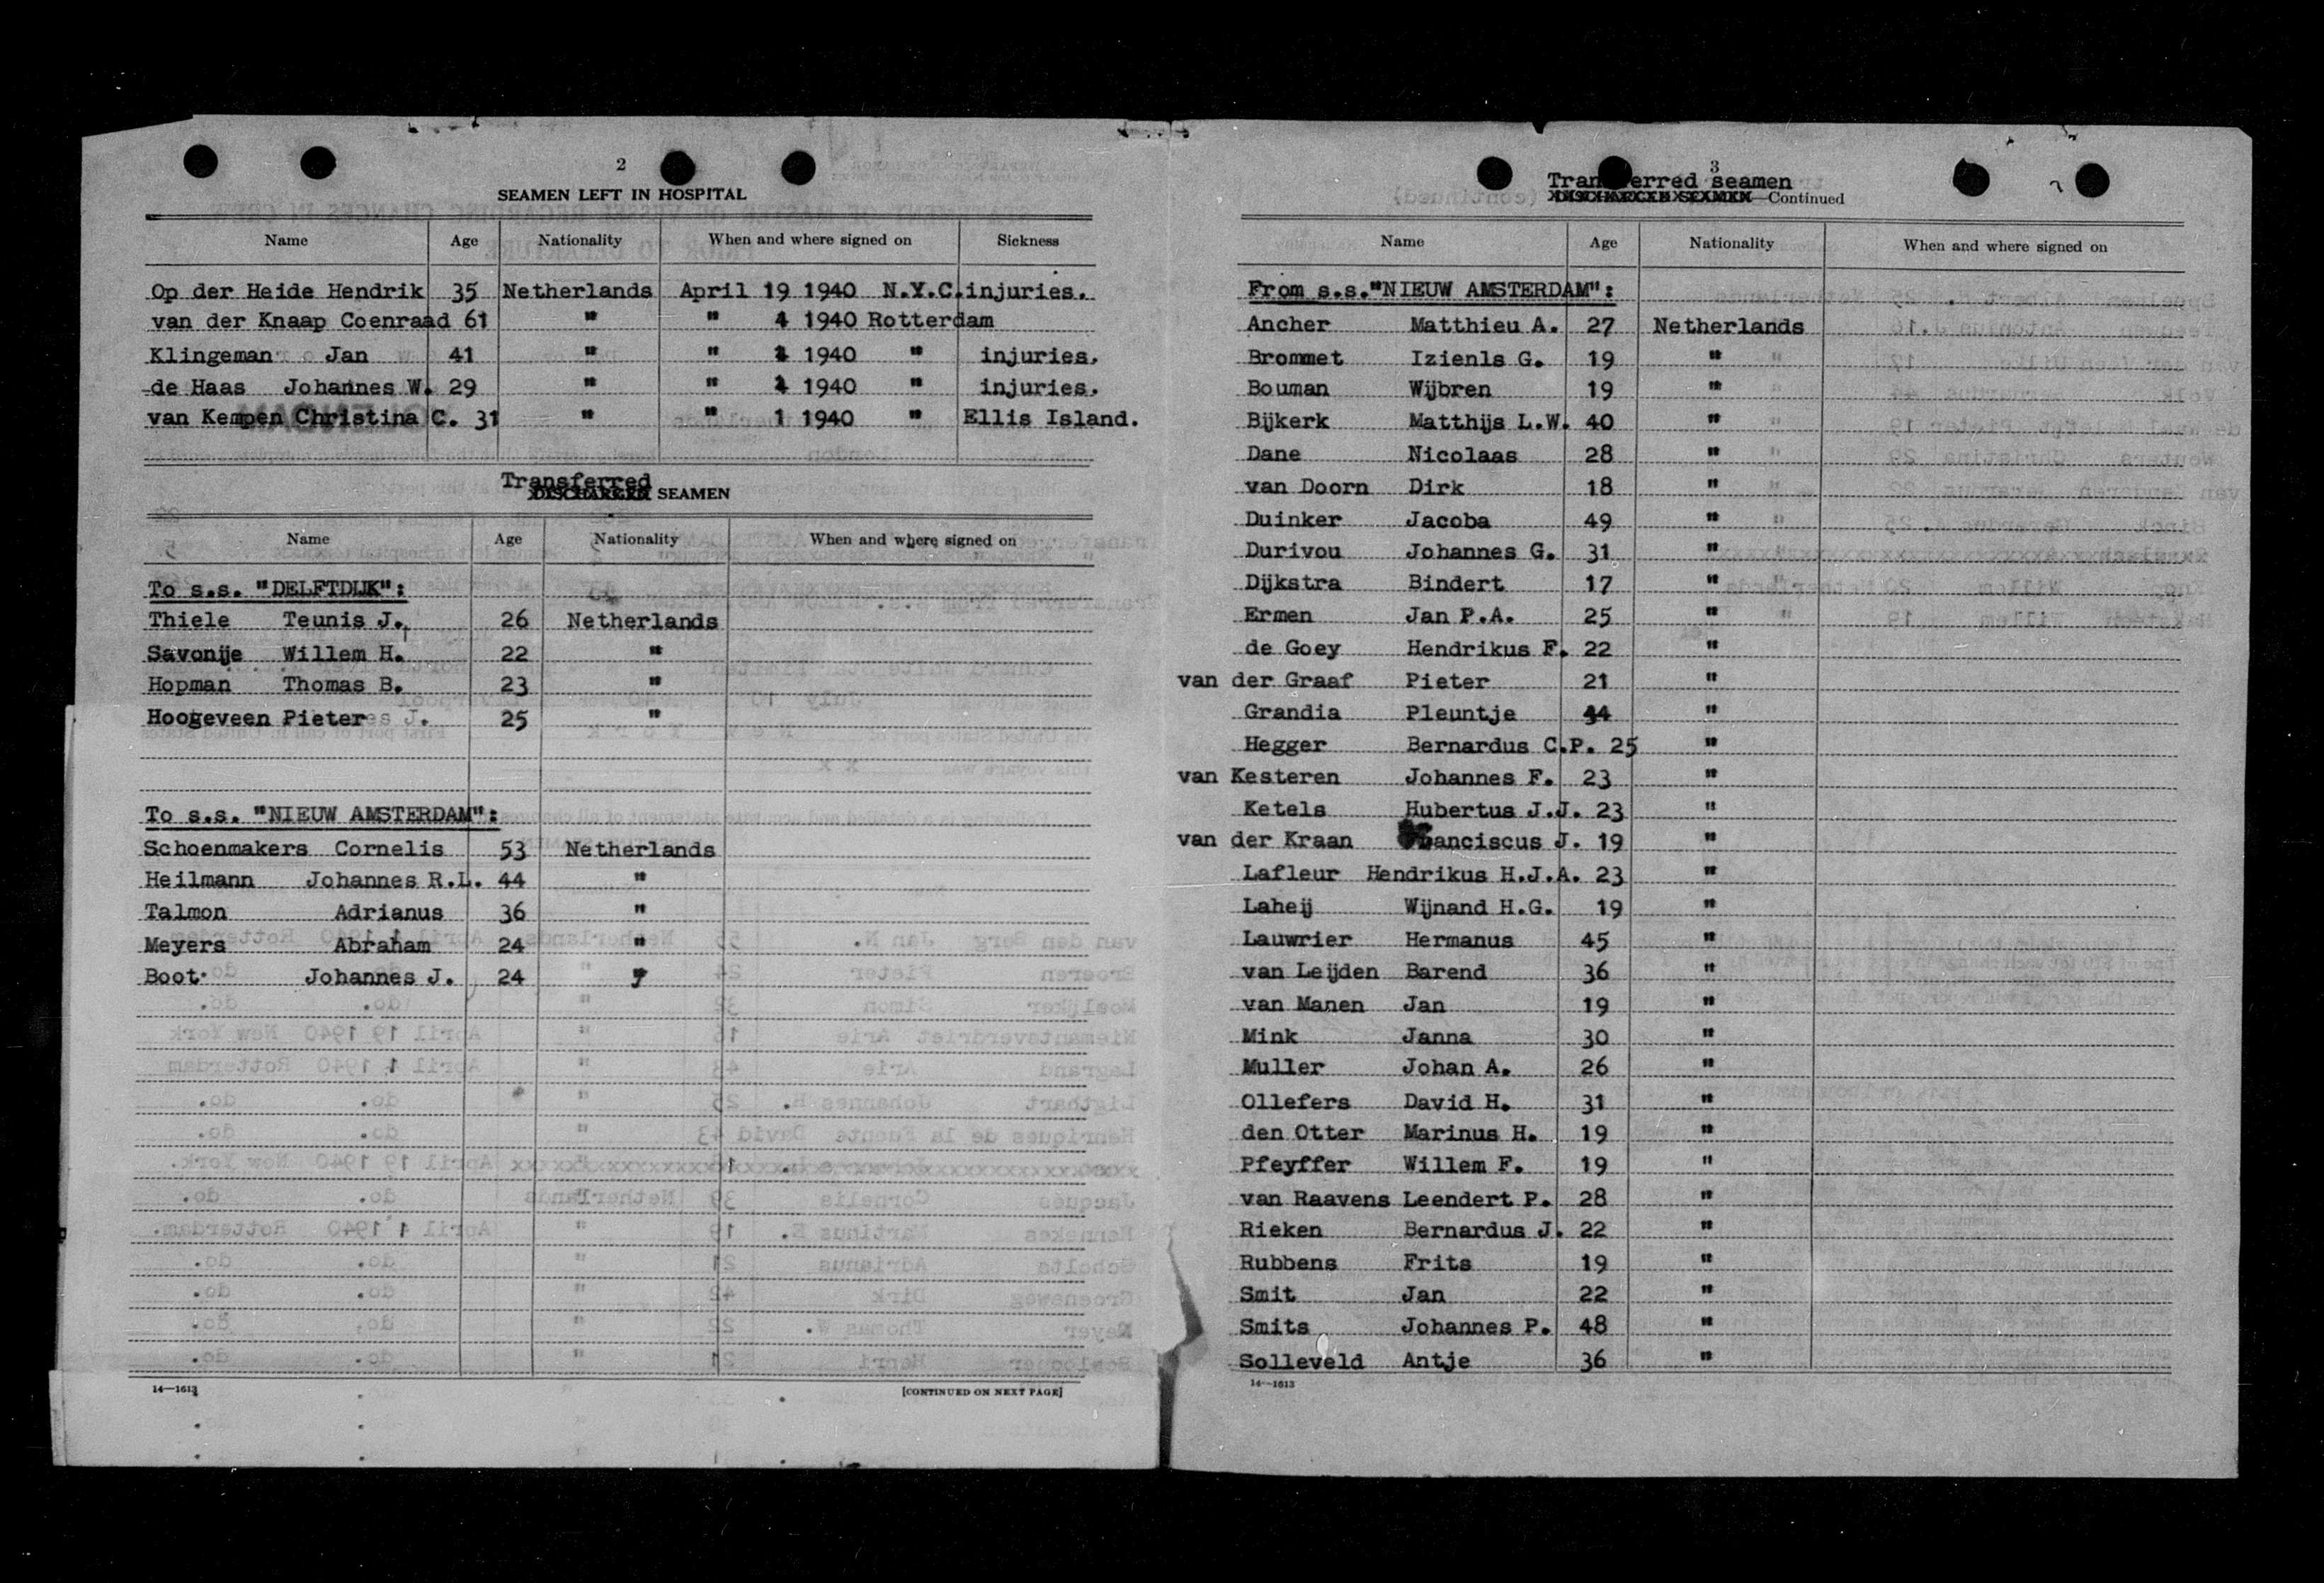 2
SEAMEN LEFT IN HOSPITAL
Name Age Nationality When and where signed on Sickness
Op der Heide Hendrik 35 Netherlands April 19 1940 N.Y.C. injuries.
van der Knaap Coenraad 61 " " 1 1940 Rotterdam
Klingeman Jan 41 " " 1 1940 " injuries.
de Haas Johannes W. 29 " " 1 1940 " injuries.
van Kempen Christina C. 31 " " 1 1940 " Ellis Island.
Transferred
DISCHARGED SEAMEN
Name Age Nationality When and where signed on
To s.s. "DELFTDIJK":
Thiele Teunis J. 26 Netherlands
Savonije Willem H. 22 "
Hopman Thomas B. 23 "
Hoogeveen Pieter 25 "
To s.s. "NIEUW AMSTERDAM":
Schoenmakers Cornelis 53 Netherlands
Heilmann Johannes R.L. 44 "
Talmon Adrianus 36 "
Meyers Abraham 24 "
Boot Johannes J. 24 "
14—1613
[CONTINUED ON NEXT PAGE]
3
Transferred seamen
DISCHARGED SEAMEN—Continued
Name Age Nationality When and where signed on
From s.s."NIEUW AMSTERDAM":
Ancher Matthieu A. 27 Netherlands
Brommet Izienls G. 19 "
Bouman Wijbren 19 "
Bijkerk Matthijs L.W. 40 "
Dane Nicolaas 28 "
van Doorn Dirk 18 "
Duinker Jacoba 49 "
Durivou Johannes G. 31 "
Dijkstra Bindert 17 "
Ermen Jan P.A. 25 "
de Goey Hendrikus F. 22 "
van der Graaf Pieter 21 "
Grandia Pleuntje 34 "
Hegger Bernardus C.P. 25 "
van Kesteren Johannes F. 23 "
Ketels Hubertus J.J. 23 "
van der Kraan Franciscus J. 19 "
Lafleur Hendrikus H.J.A. 23 "
Laheij Wijnand H.G. 19 "
Lauwrier Hermanus 45 "
van Leijden Barend 36 "
van Manen Jan 19 "
Mink Janna 30 "
Muller Johan A. 26 "
Ollefers David H. 31 "
den Otter Marinus H. 19 "
Pfeyffer Willem F. 19 "
van Raavens Leendert P. 28 "
Rieken Bernardus J. 22 "
Rubbens Frits 19 "
Smit Jan 22 "
Smits Johannes P. 48 "
Solleveld Antje 36 "
14—1613